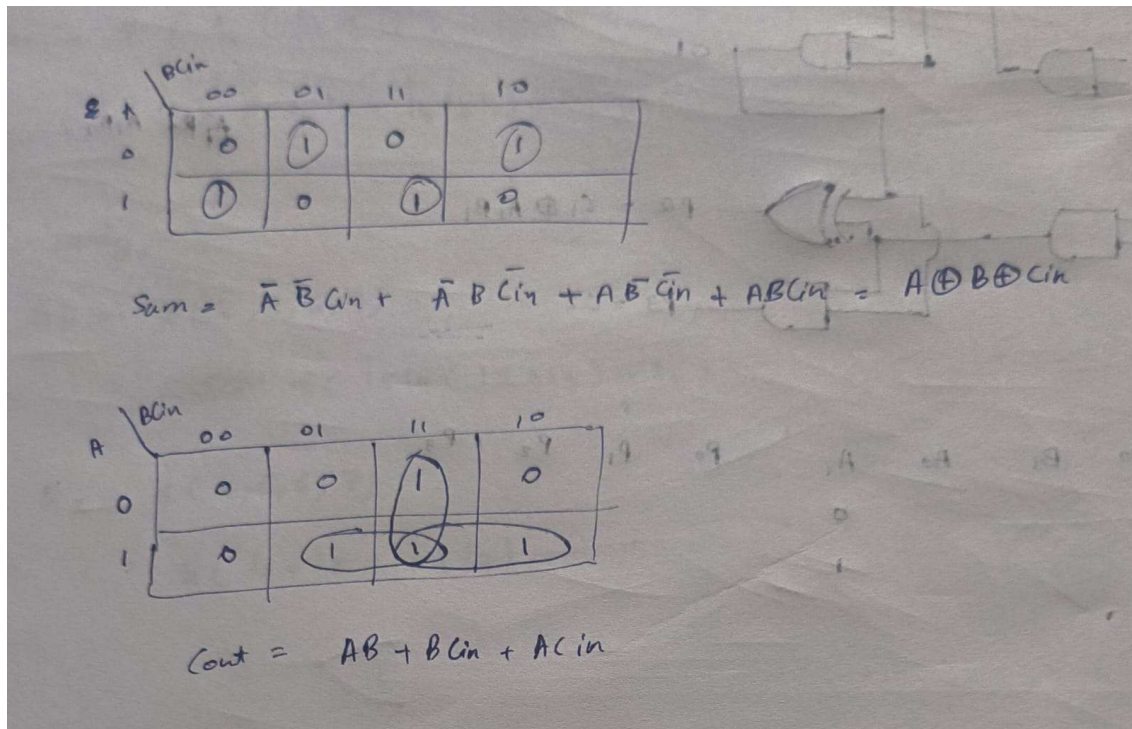 BCin
A 00 01 11 10
0 0 1 0 1
1 1 0 1 0
Sum = A̅ B̅ Cin + A̅ B C̅i̅n̅ + A B̅ C̅i̅n̅ + ABCin = A ⊕ B ⊕ Cin
BCin
A 00 01 11 10
0 0 0 1 0
1 0 1 1 1
Cout = AB + BCin + ACin